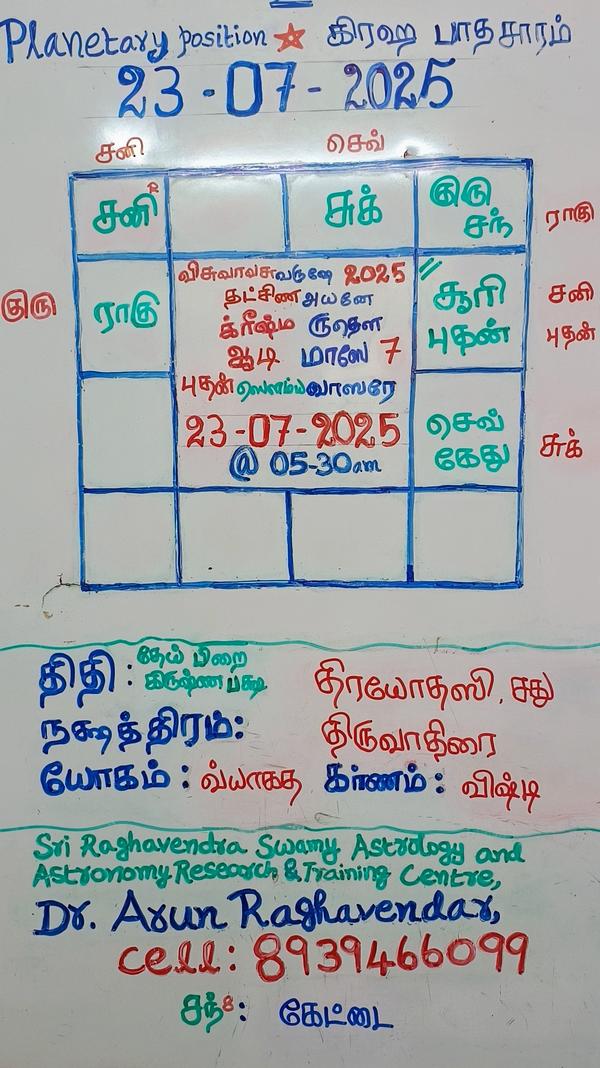 Planetary position ★ கிரஹ பாதசாரம்
23-07-2025
சனி
செவ்
சனி R
சுக்
குரு
சந்
ராகு
குரு
ராகு
விசுவாவசுவருஷே 2025
தட்சிண அயனே
க்ரீஷ்ம ருதௌ
ஆடி மாஸே 7
புதன் ஸௌம்ய வாஸரே
23-07-2025
@ 05-30am
சூரி
புதன்
சனி
புதன்
செவ்
கேது
சுக்
திதி: தேய் பிறை
கிருஷ்ண பக்ஷ
திரயோதஸி, சது
நக்ஷத்திரம்: திருவாதிரை
யோகம்: வ்யாகத கர்ணம்: விஷ்டி
Sri Raghavendra Swamy Astrology and
Astronomy Research & Training Centre,
Dr. Arun Raghavendar,
cell: 8939466099
சந் 8: கேட்டை